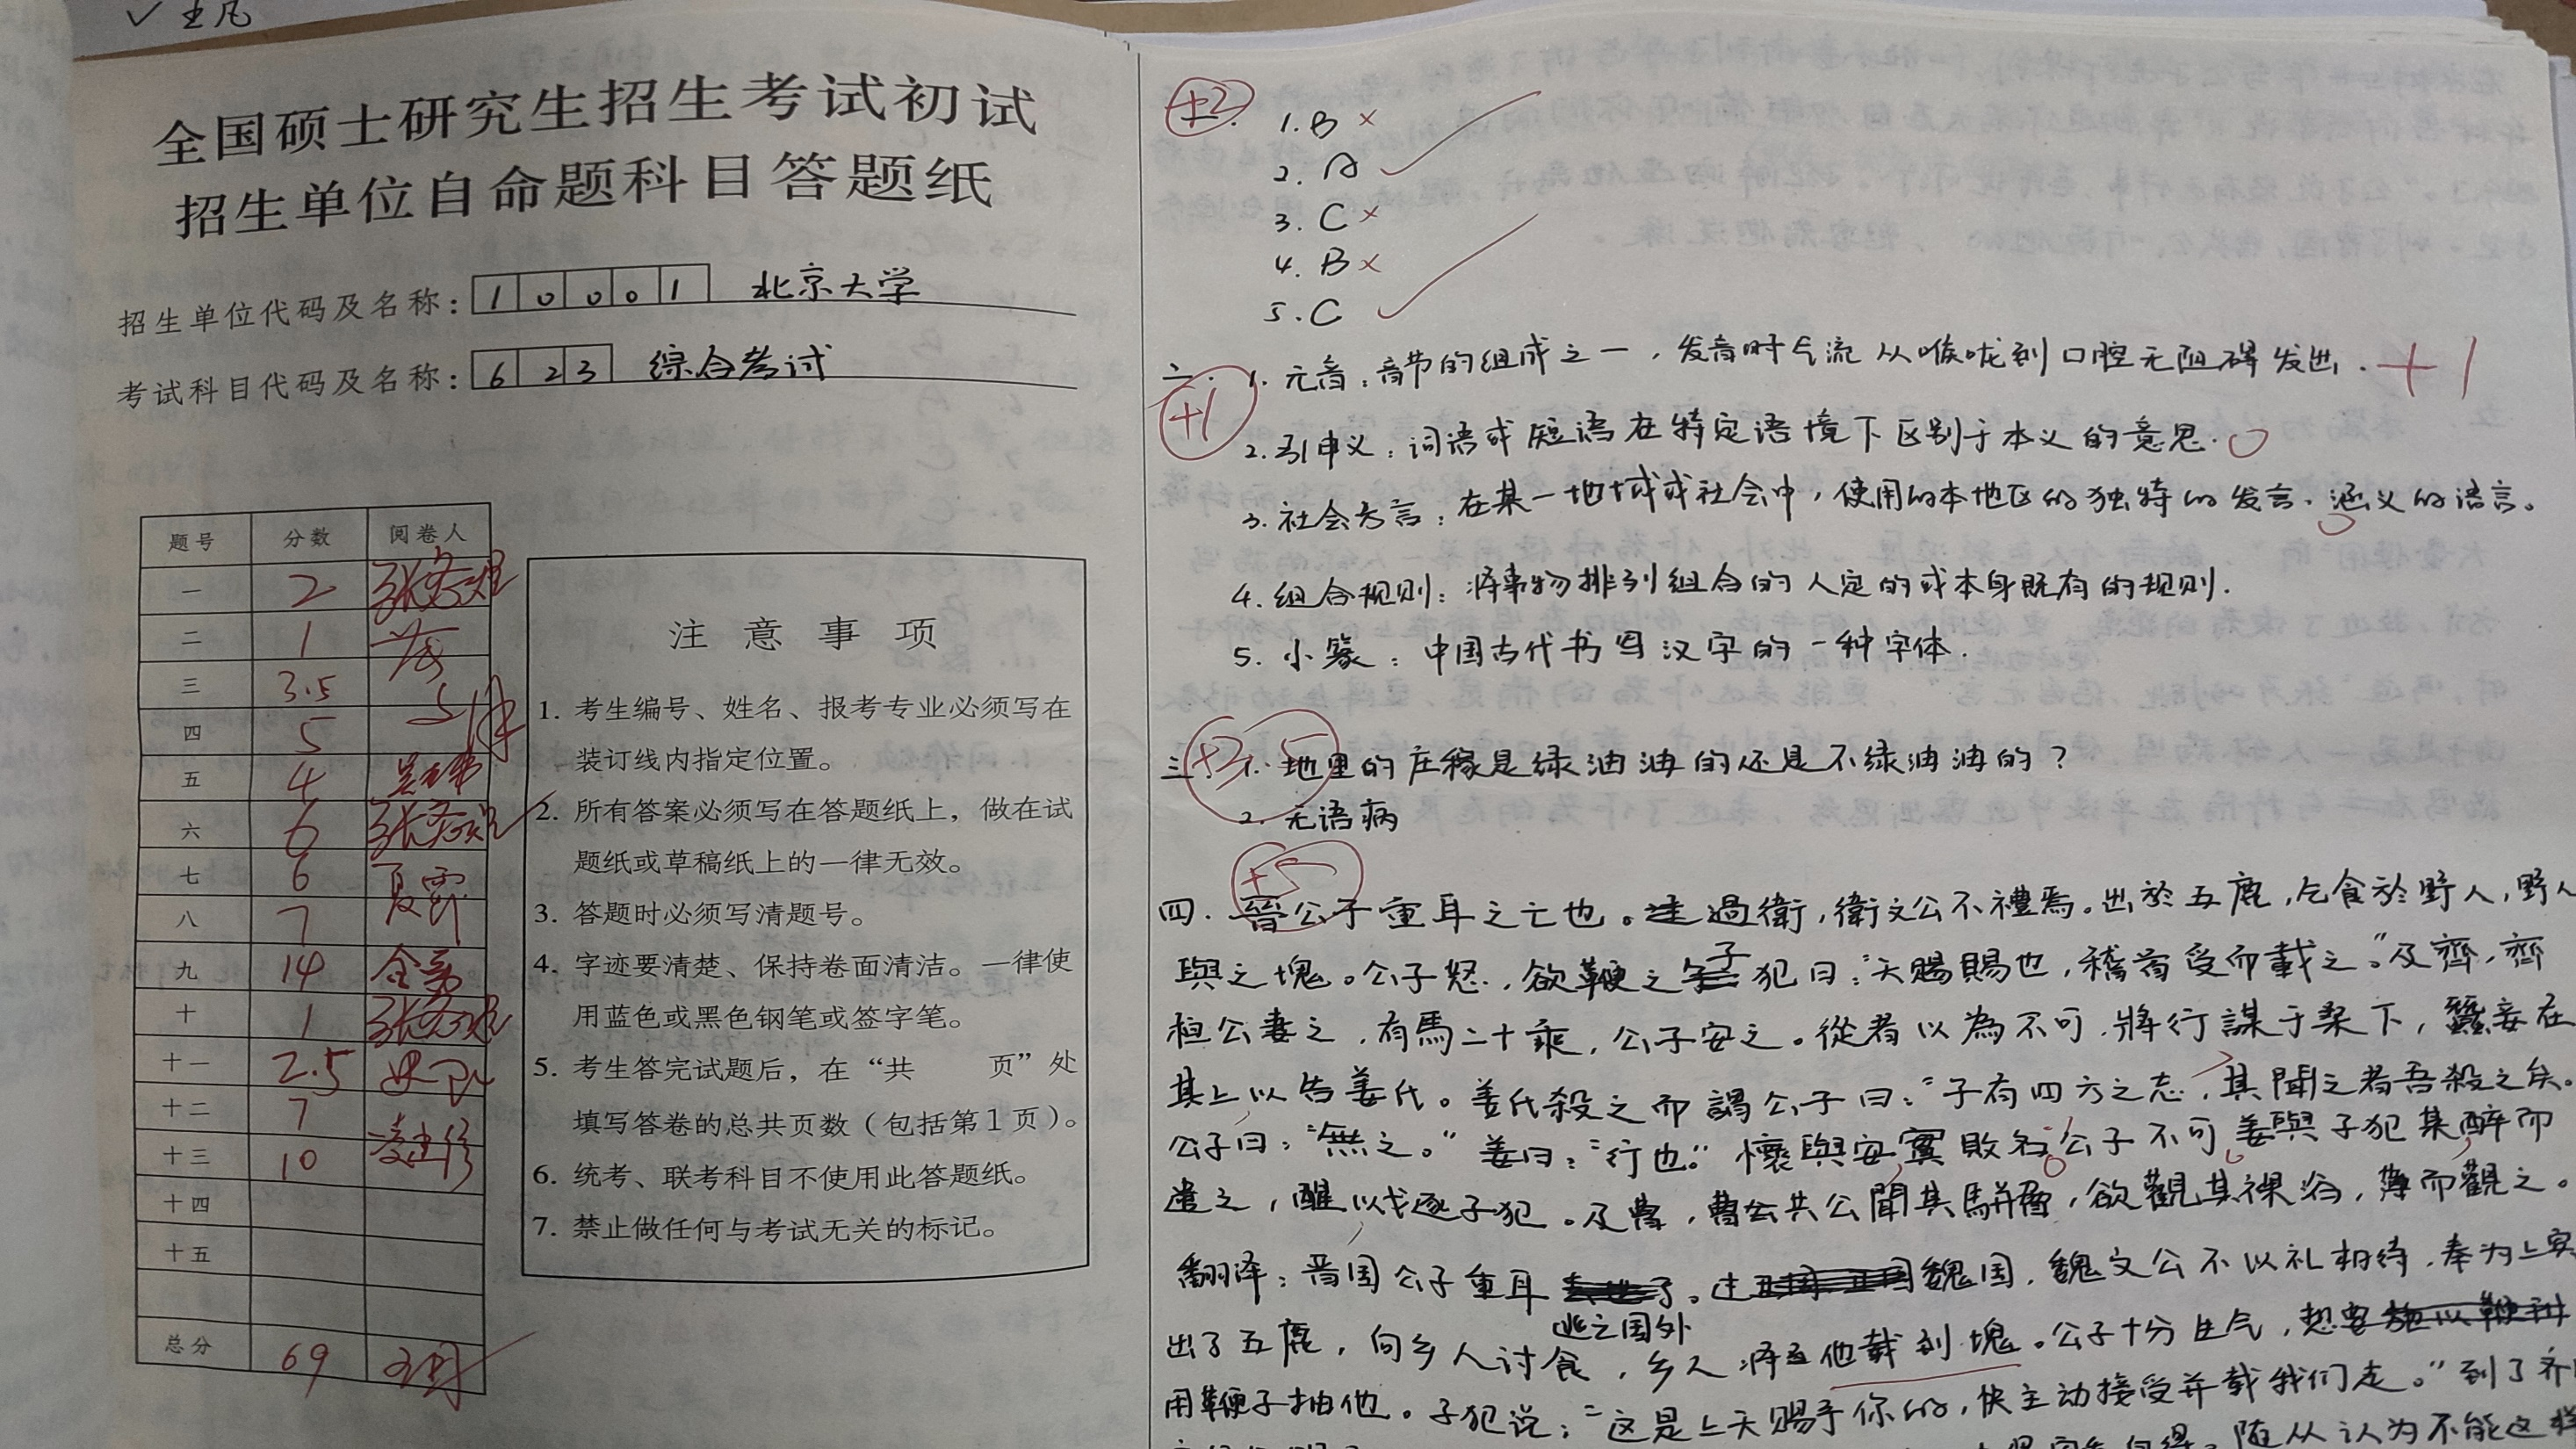 ✓ 王凡
全国硕士研究生招生考试初试
招生单位自命题科目答题纸
招生单位代码及名称：10001 北京大学
考试科目代码及名称：623 综合考试
题号 分数 阅卷人
一 2
二 1
三 3.5
四 5
五 4
六 6
七 6 夏霁
八 7
九 14
十 1
十一 2.5
十二 7
十三 10
十四
十五
总分 69
注意事项
1. 考生编号、姓名、报考专业必须写在
装订线内指定位置。
2. 所有答案必须写在答题纸上，做在试
题纸或草稿纸上的一律无效。
3. 答题时必须写清题号。
4. 字迹要清楚、保持卷面清洁。一律使
用蓝色或黑色钢笔或签字笔。
5. 考生答完试题后，在“共 页”处
填写答卷的总共页数（包括第1页）。
6. 统考、联考科目不使用此答题纸。
7. 禁止做任何与考试无关的标记。
+2
一. 1. B ×
2. A ✓
3. C ×
4. B ×
5. C ✓
二. 1. 元音：音节的组成之一，发音时气流从喉咙到口腔无阻碍发出. +1
+1
2. 引申义：词语或短语在特定语境下区别于本义的意思.
3. 社会方言：在某一地域或社会中，使用的本地区的独特的发言、涵义的语言。
4. 组合规则：将事物排列组合的人定的或本身既有的规则.
5. 小篆：中国古代书写汉字的一种字体.
+3.5
三. 1. 地里的庄稼是绿油油的还是不绿油油的？
2. 无语病
+5
四. 晉公子重耳之亡也。過衛，衛文公不禮焉。出於五鹿，乞食於野人，野人
與之塊。公子怒，欲鞭之子犯曰：“天賜賜也，稽首受而載之。”及齊，齊
桓公妻之，有馬二十乘，公子安之。從者以為不可，將行謀于桑下，蠶妾在
其上以告姜氏。姜氏殺之而謂公子曰：“子有四方之志，其聞之者吾殺之矣。
公子曰：“無之。”姜曰：“行也。”懷與安實敗名公子不可姜與子犯其醉而
遣之，醒以戈逐子犯。及曹，曹共公聞其駢脅，欲觀其裸浴，薄而觀之。
翻译：晋国公子重耳逃亡国外。过魏国，魏文公不以礼相待，奉为上宾
出了五鹿，向乡人讨食，乡人将他载到塊。公子十分生气，想要
用鞭子抽他。子犯说：“这是上天赐予你的，快主动接受并载我们走。”到了齐
随从认为不能这样